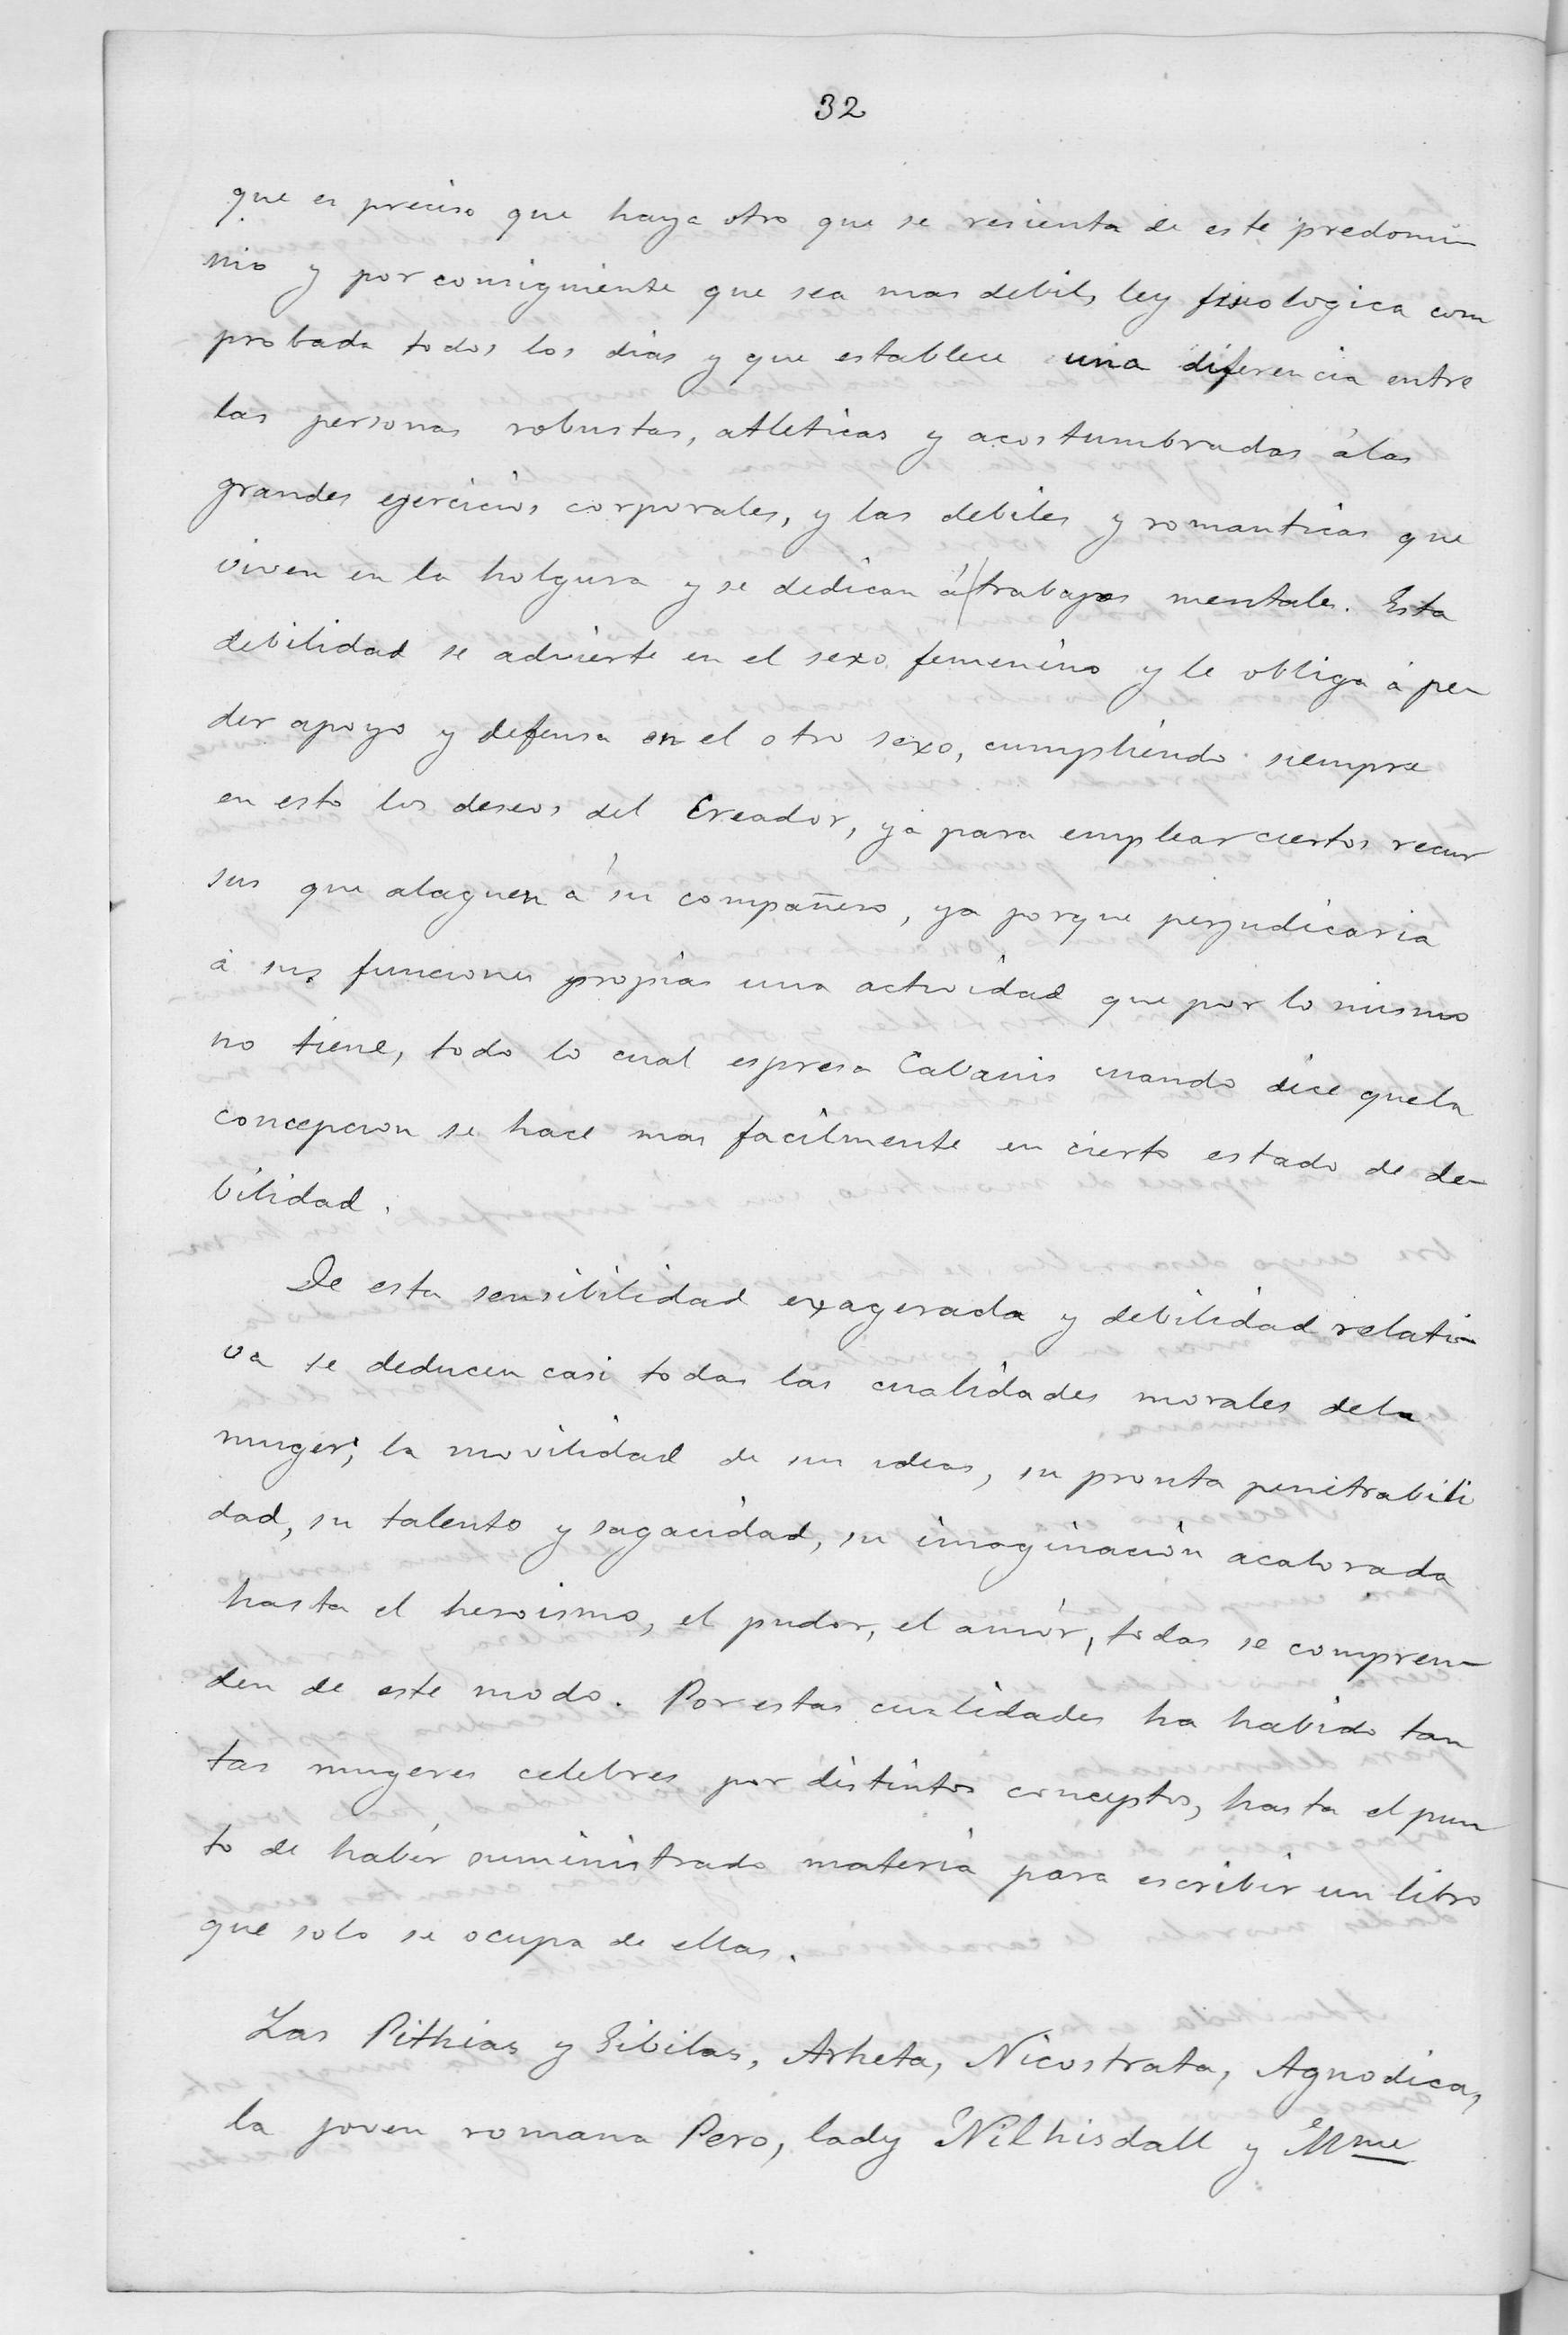 32
que es preciso que haya otro que se resienta de este predomi-
nio y por consiguiente que sea mas debil, ley fisiologica com
probada todos los dias y que establece una diferencia entre
las personas robustas, atleticas y acostumbradas á las
grandes ejercicios corporales, y las debiles y romanticas que
viven en la holgura y se dedican á trabajos mentales. Esta
debilidad se advierte en el sexo femenino y le obliga á pen
der apoyo y defensa en el otro sexo, cumpliendo siempre
en esto los deseos del Creador, ya para emplear ciertos recur
sus que alaguen á su compañero, ya porque perjudicaria
á sus funciones propias una actividad que por lo mismo
no tiene, todo lo cual espresa Cabanis cuando dice que la
concepcion se hace mas facilmente en cierto estado de de-
bilidad.
De esta sensibilidad exagerada y debilidad relati-
va se deducen casi todas las cualidades morales de la
muger; la movilidad de sus ideas, su pronta penetrabili
dad, su talento y sagacidad, su imaginación acalorada
hasta el heroismo, el pudor, el amór, todas se compren-
den de este modo. Por estas cualidades ha habido tan
tas mugeres celebres por distintos conceptos, hasta el pun
to de habér suministrado materia para escribir un libro
que solo se ocupa de ellas.
Las Pithias y Sibilas, Arheta, Nicostrata, Agnodica,
la joven romana Pero, lady Nilhisdall y Mme